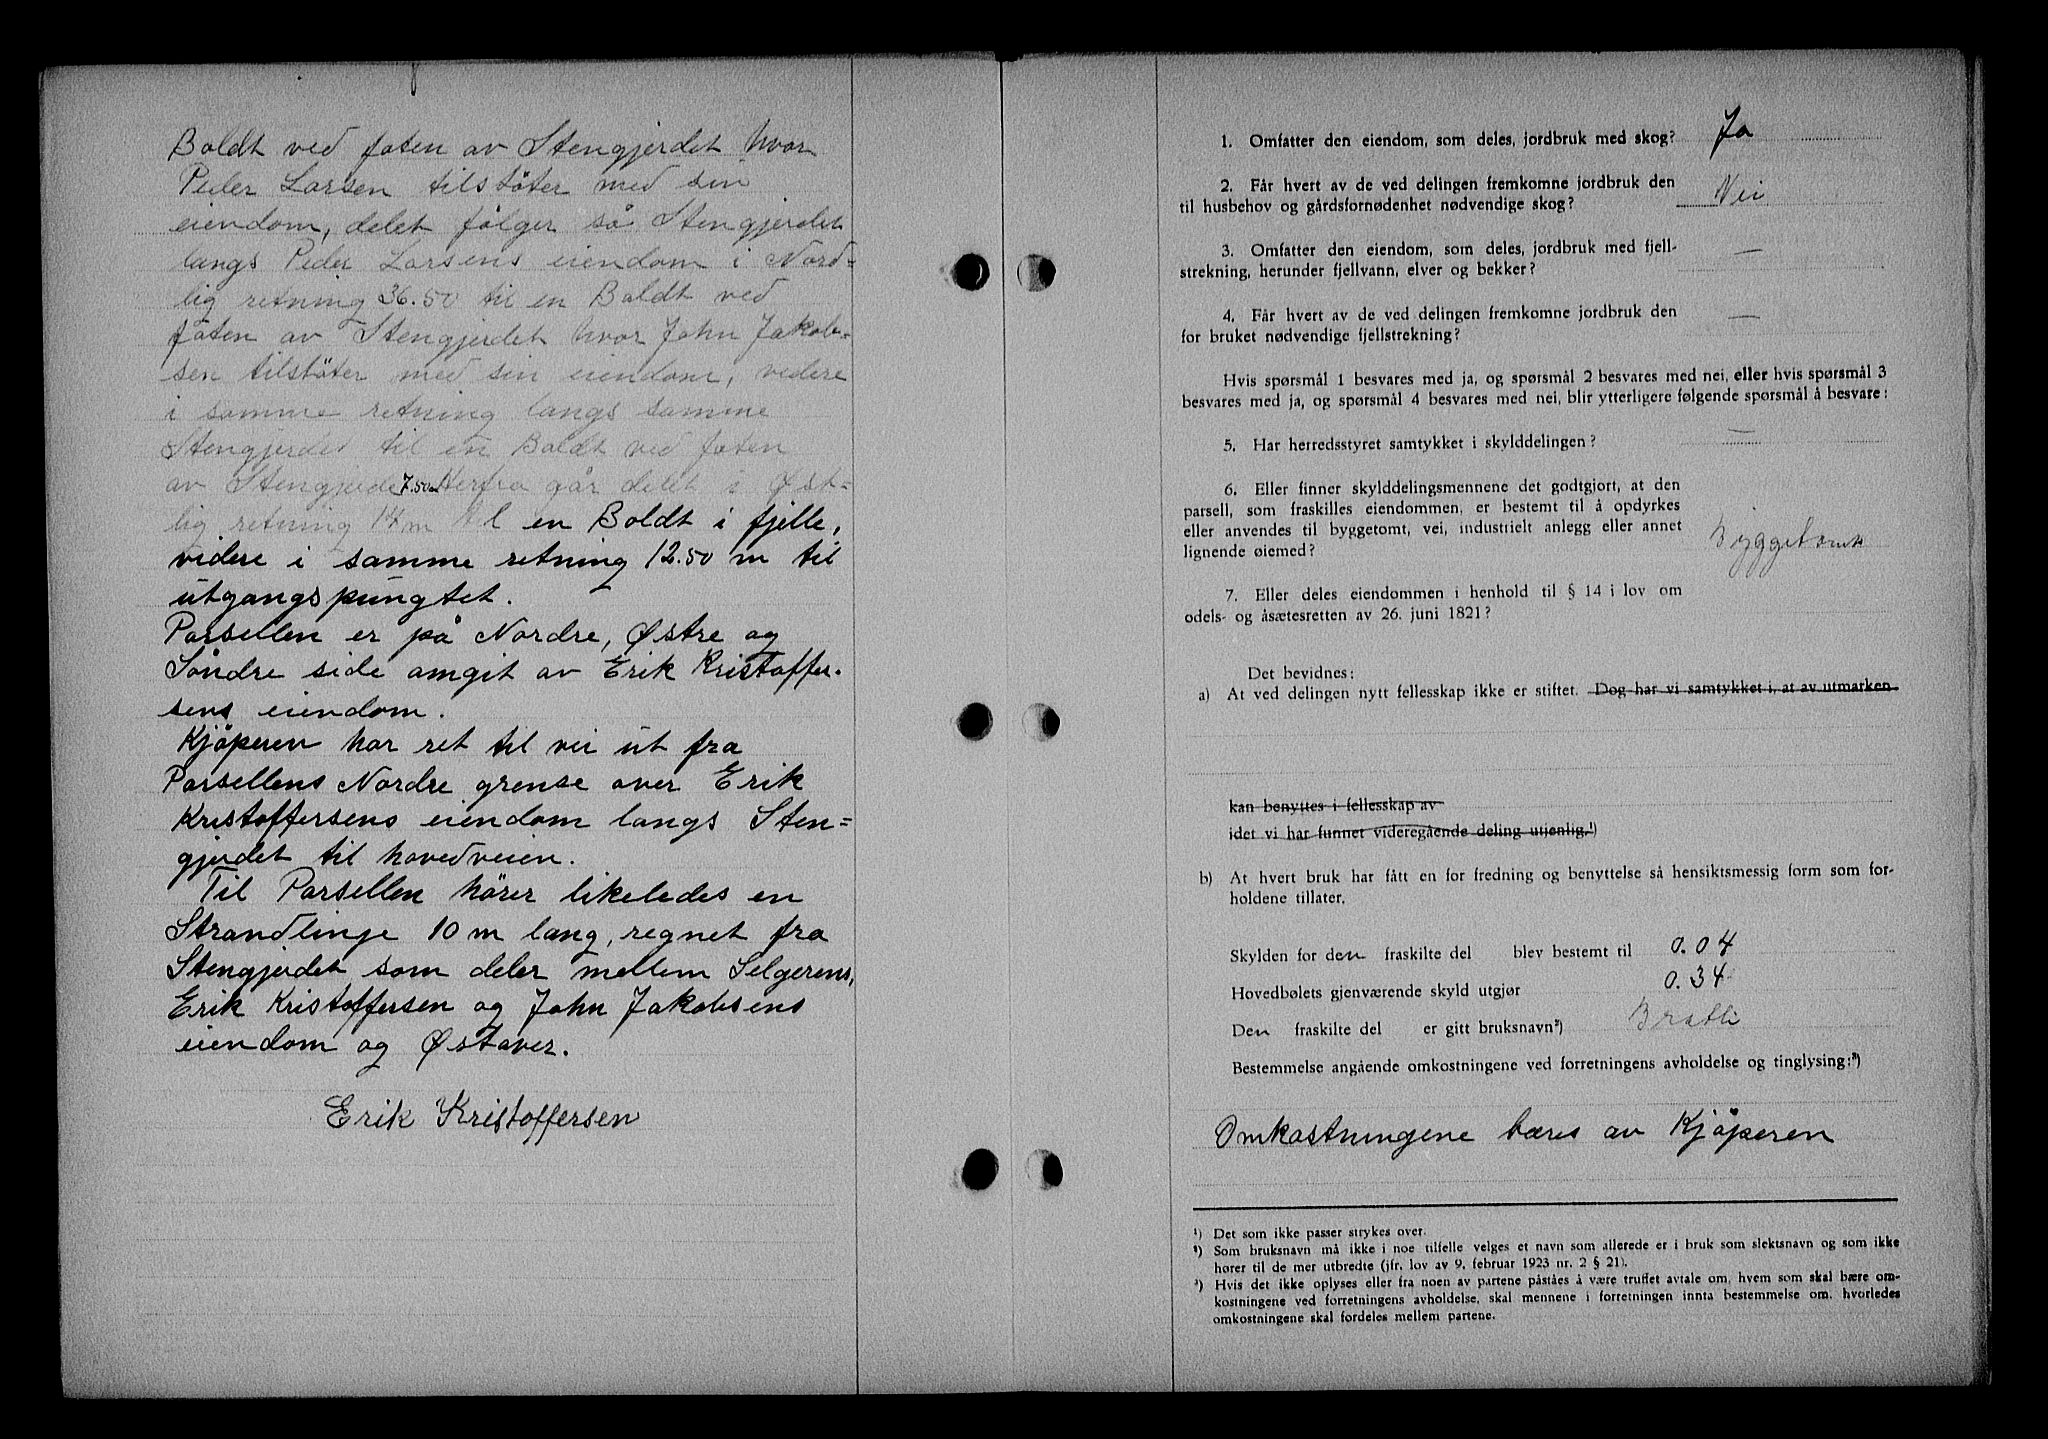 Boldt ved foten av Stengjerdet hvor
Peder Larsen tilstöter med sin
eiendom, delet følger så Stengjerdet
langs Peder Larsens eiendom i Nord=
lig retning 36.50 til en Boldt ved
foten av Stengjerdet hvor John Jakob=
sen tilstöter med sin eiendom, videre
i samme retning langs samme
Stengjerdet til en Boldt ved foten
av Stengjerde 7.50m Herfra går delet i Øst=
lig retning 14 m til en Boldt i fjelle,
videre i samme retning 12.50 m til
utgangspungtet.
Parsellen er på Nordre, Østre og
Söndre side omgit av Erik Kristoffer-
sens eiendom.
Kjöperen har ret til vei ut fra
Parsellens Nordre grense over Erik
Kristoffersens eiendom langs Sten=
gjerdet til hovedveien.
Til Parsellen hörer likeledes en
Strandlinje 10 m lang, regnet fra
Stengjerdet som deler mellem Selgerens,
Erik Kristoffersen og John Jakobsens
eiendom og Østover.
Erik Kristoffersen
1. Omfatter den eiendom, som deles, jordbruk med skog? Ja
2. Får hvert av de ved delingen fremkomne jordbruk den
til husbehov og gårdsfornødenhet nødvendige skog? Nei
3. Omfatter den eiendom, som deles, jordbruk med fjell-
strekning, herunder fjellvann, elver og bekker? —
4. Får hvert av de ved delingen fremkomne jordbruk den
for bruket nødvendige fjellstrekning? —
Hvis spørsmål 1 besvares med ja, og spørsmål 2 besvares med nei, eller hvis spørsmål 3
besvares med ja, og spørsmål 4 besvares med nei, blir ytterligere følgende spørsmål å besvare:
5. Har herredsstyret samtykket i skylddelingen? —
6. Eller finner skylddelingsmennene det godtgjort, at den
parsell, som fraskilles eiendommen, er bestemt til å opdyrkes
eller anvendes til byggetomt, vei, industrielt anlegg eller annet
lignende øiemed? Byggetomt
7. Eller deles eiendommen i henhold til § 14 i lov om
odels- og åsætesretten av 26. juni 1821?
Det bevidnes:
a) At ved delingen nytt fellesskap ikke er stiftet. Dog har vi samtykket i, at av utmarken
kan benyttes i fellesskap av
idet vi har funnet videregående deling utjenlig.¹)
b) At hvert bruk har fått en for fredning og benyttelse så hensiktsmessig form som for-
holdene tillater.
Skylden for den fraskilte del blev bestemt til 0.04
Hovedbølets gjenværende skyld utgjør 0.34
Den fraskilte del er gitt bruksnavn²) Bratli
Bestemmelse angående omkostningene ved forretningens avholdelse og tinglysing:³)
Omkostningene bæres av Kjöperen
¹) Det som ikke passer strykes over.
²) Som bruksnavn må ikke i noe tilfelle velges et navn som allerede er i bruk som slektsnavn og som ikke
hører til de mer utbredte (jfr. lov av 9. februar 1923 nr. 2 § 21).
³) Hvis det ikke oplyses eller fra noen av partene påståes å være truffet avtale om, hvem som skal bære om-
kostningene ved forretningens avholdelse, skal mennene i forretningen innta bestemmelse om, hvorledes
omkostningene skal fordeles mellem partene.